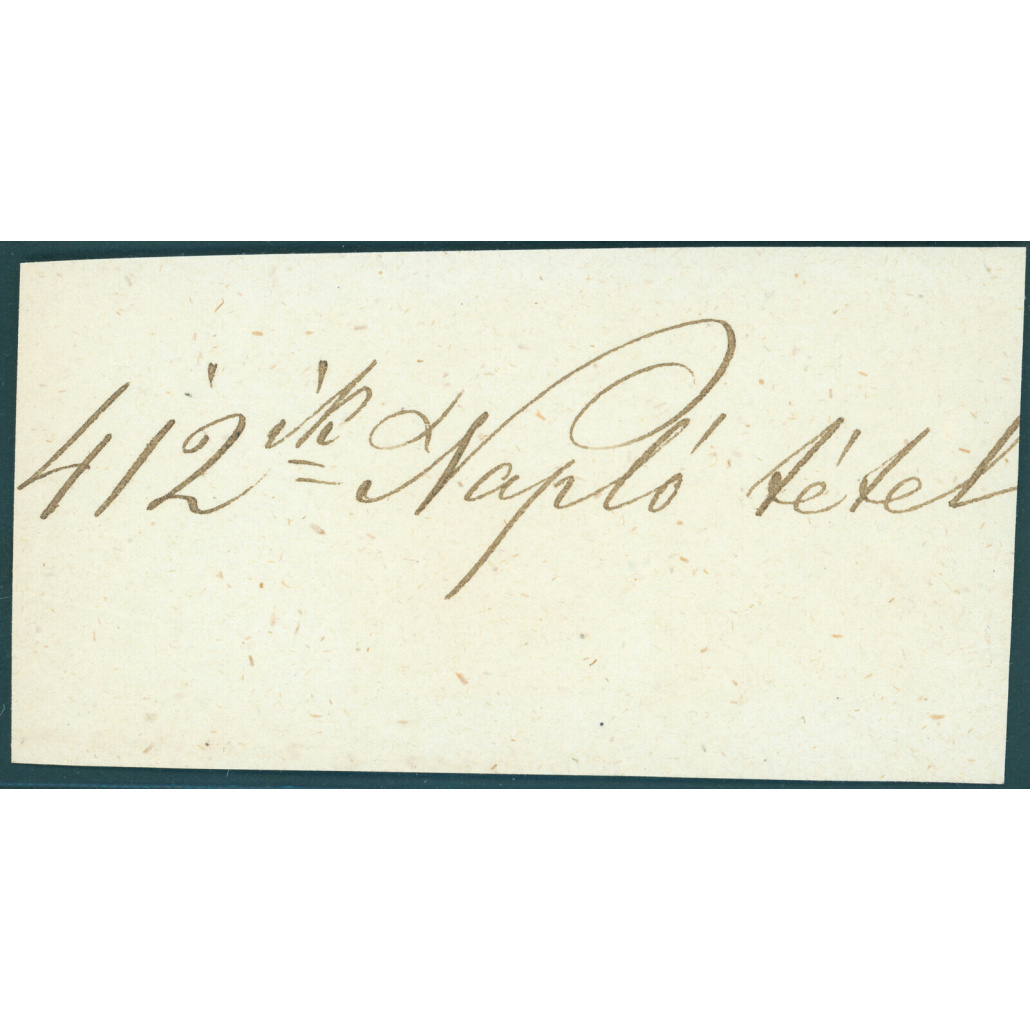 412ik Napló tétel